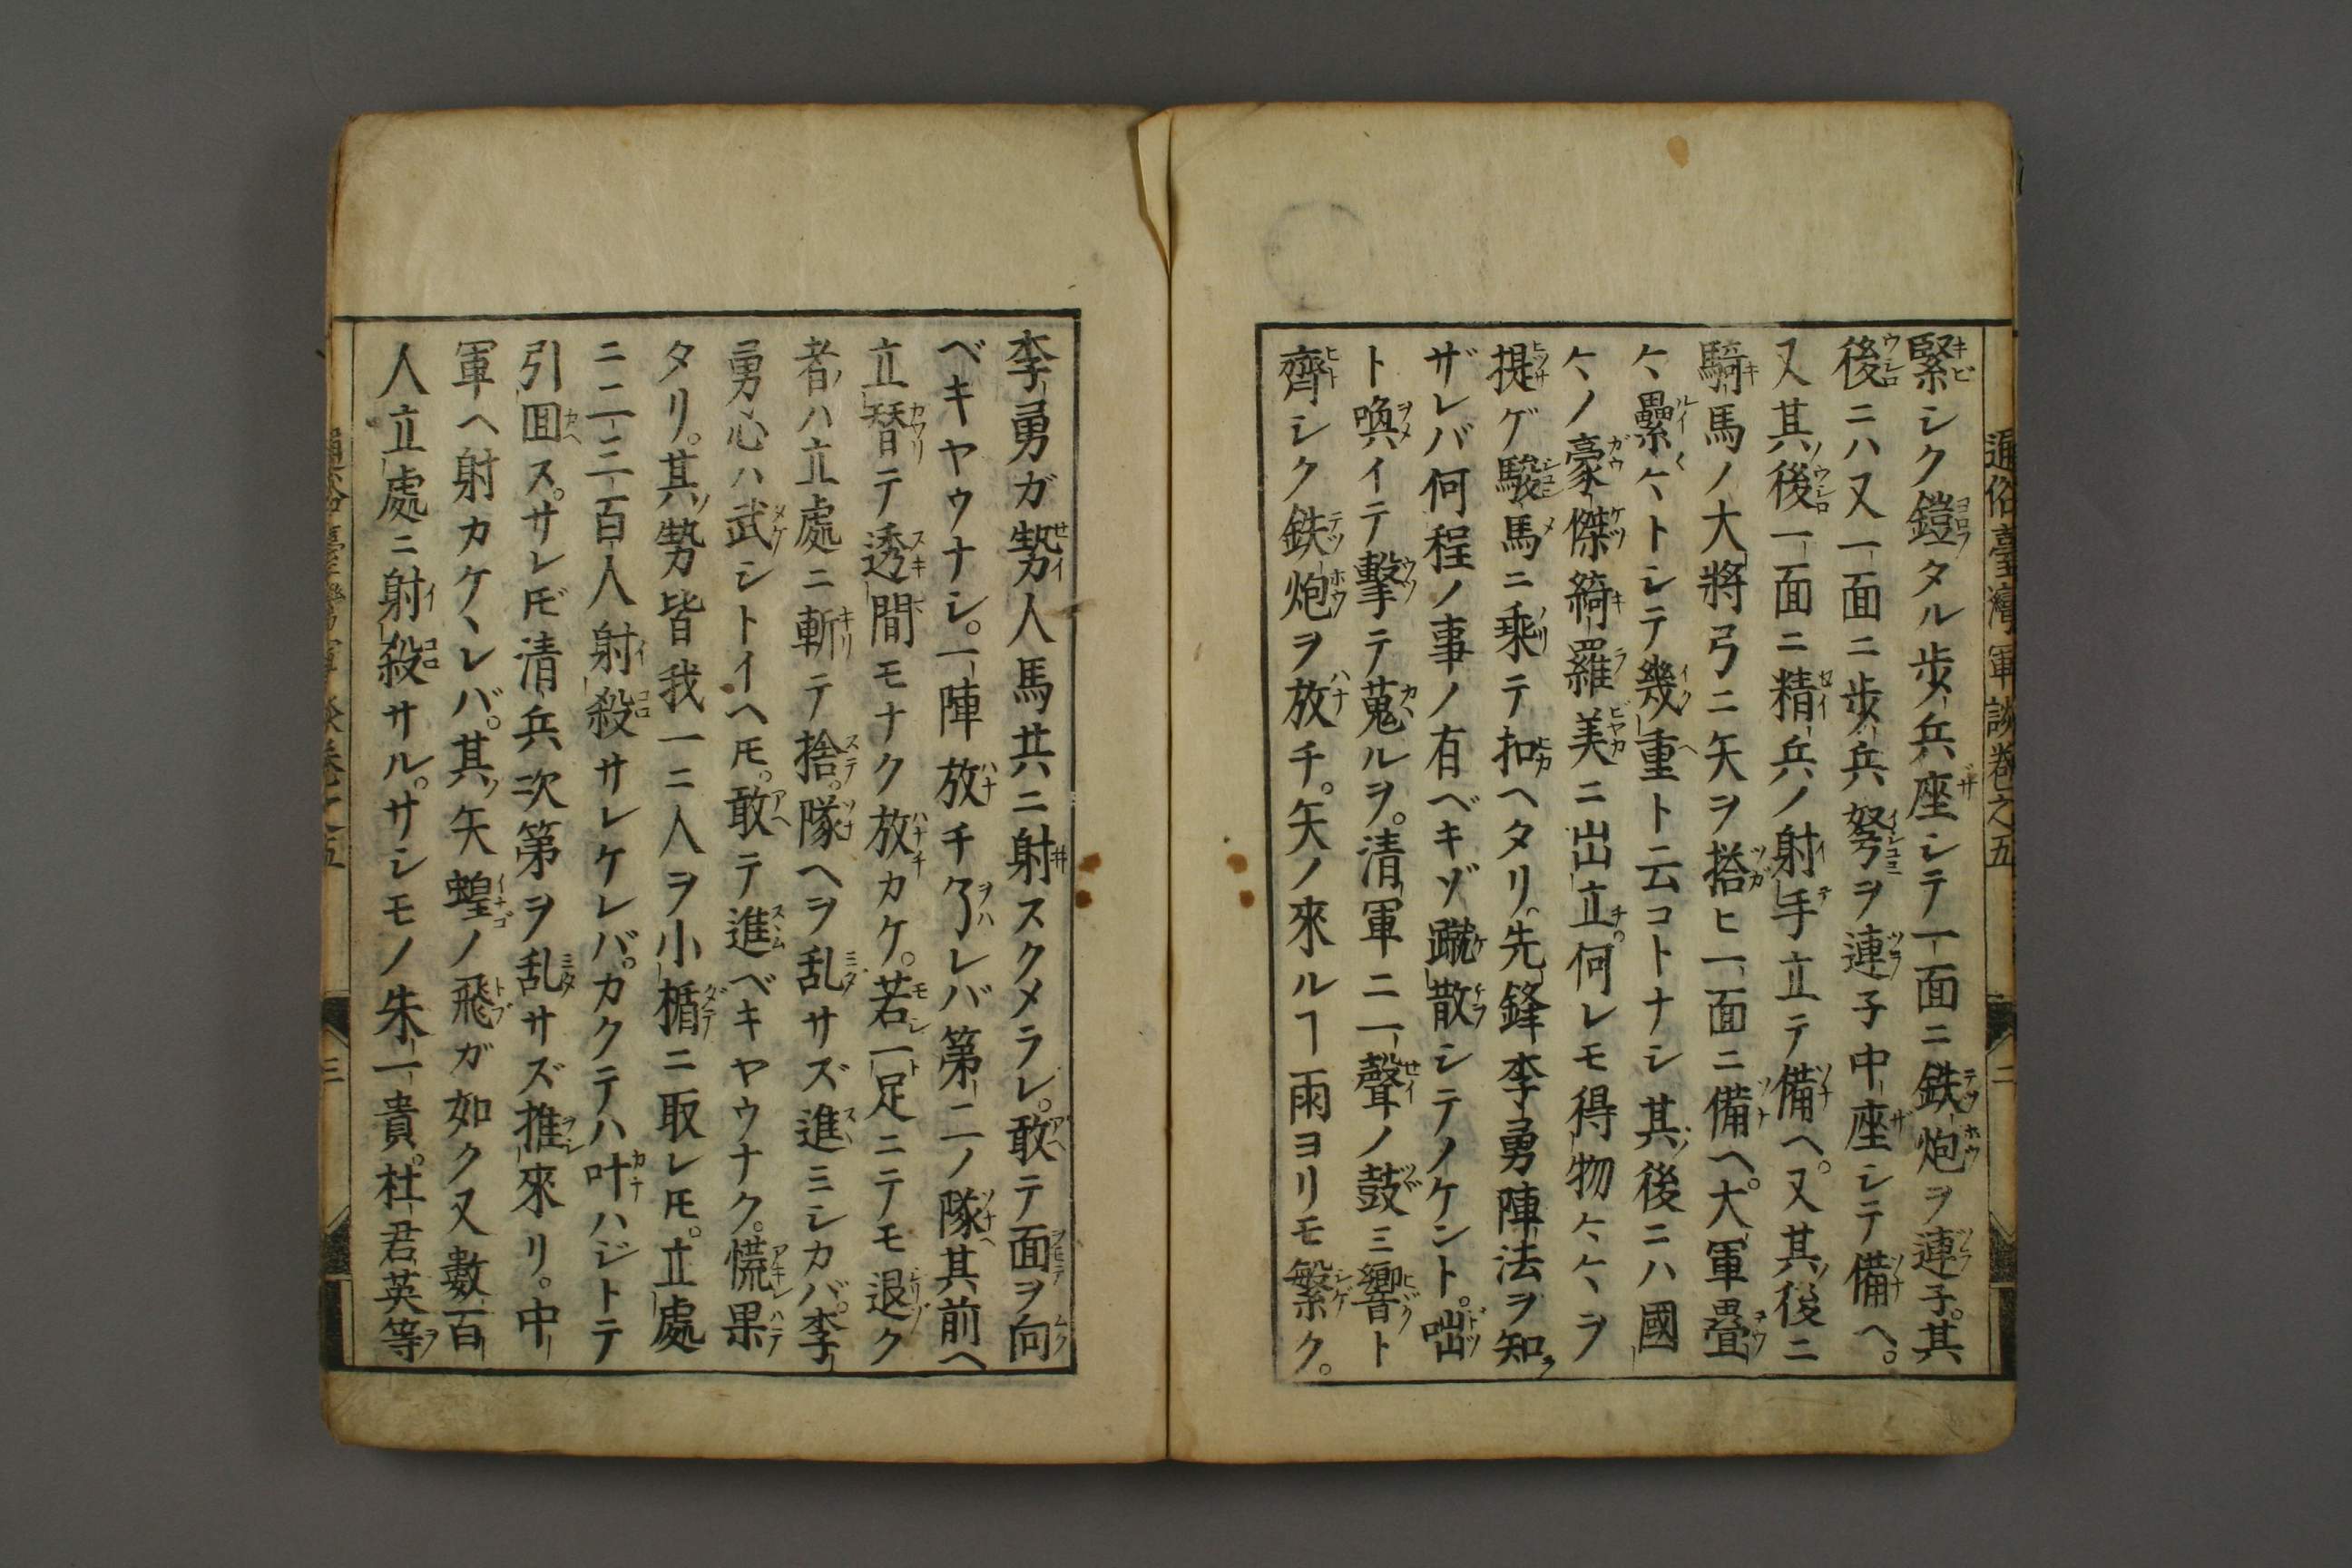 通俗臺灣軍談卷之五
二
緊シク鎧タル歩兵座シテ一面ニ鉄炮ヲ連子。其
後ニハ又一面ニ歩兵弩ヲ連子中座シテ備ヘ。
又其後一面ニ精兵ノ射手立テ備ヘ。又其後ニ
騎馬ノ大將弓ニ矢ヲ搭ヒ一面ニ備ヘ。大軍疊
々纍々トシテ幾重ト云コトナシ其後ニハ國
々ノ豪傑綺羅美ニ出立チ。何レモ得物々々ヲ
提ゲ駿馬ニ乘テ扣ヘタリ先鋒李勇陣法ヲ知ラ
ザレバ何程ノ事ノ有ベキゾ蹴散シテノケント。咄
ト喚イテ擊テ蒐ルヲ。清軍ニ一聲ノ鼓ミ響ト
齊シク鉄炮ヲ放チ。矢ノ來ルヿ雨ヨリモ繁ク。
李勇ガ勢人馬共ニ射スクメラレ。敢テ面ヲ向
ベキヤウナシ。一陣放チ了レバ第二ノ隊其前ヘ
立替テ透間モナク放カケ。若一足ニテモ退ク
者ハ立處ニ斬テ捨。隊ヘヲ乱サズ進ミシカバ。李
勇心ハ武シトイヘ𪜈。敢テ進ベキヤウナク。慌果
タリ。其勢皆我一ニ人ヲ小楯ニ取レ𪜈。立處
ニ二三百人射殺サレケレバ。カクテハ叶ハジトテ
引囬ス。サレ𪜈清兵次第ヲ乱サズ推來リ。中
軍ヘ射カケヽレバ。其矢蝗ノ飛ガ如ク又數百
人立處ニ射殺サル。サシモノ朱一貴。杜君英等ヲ
三